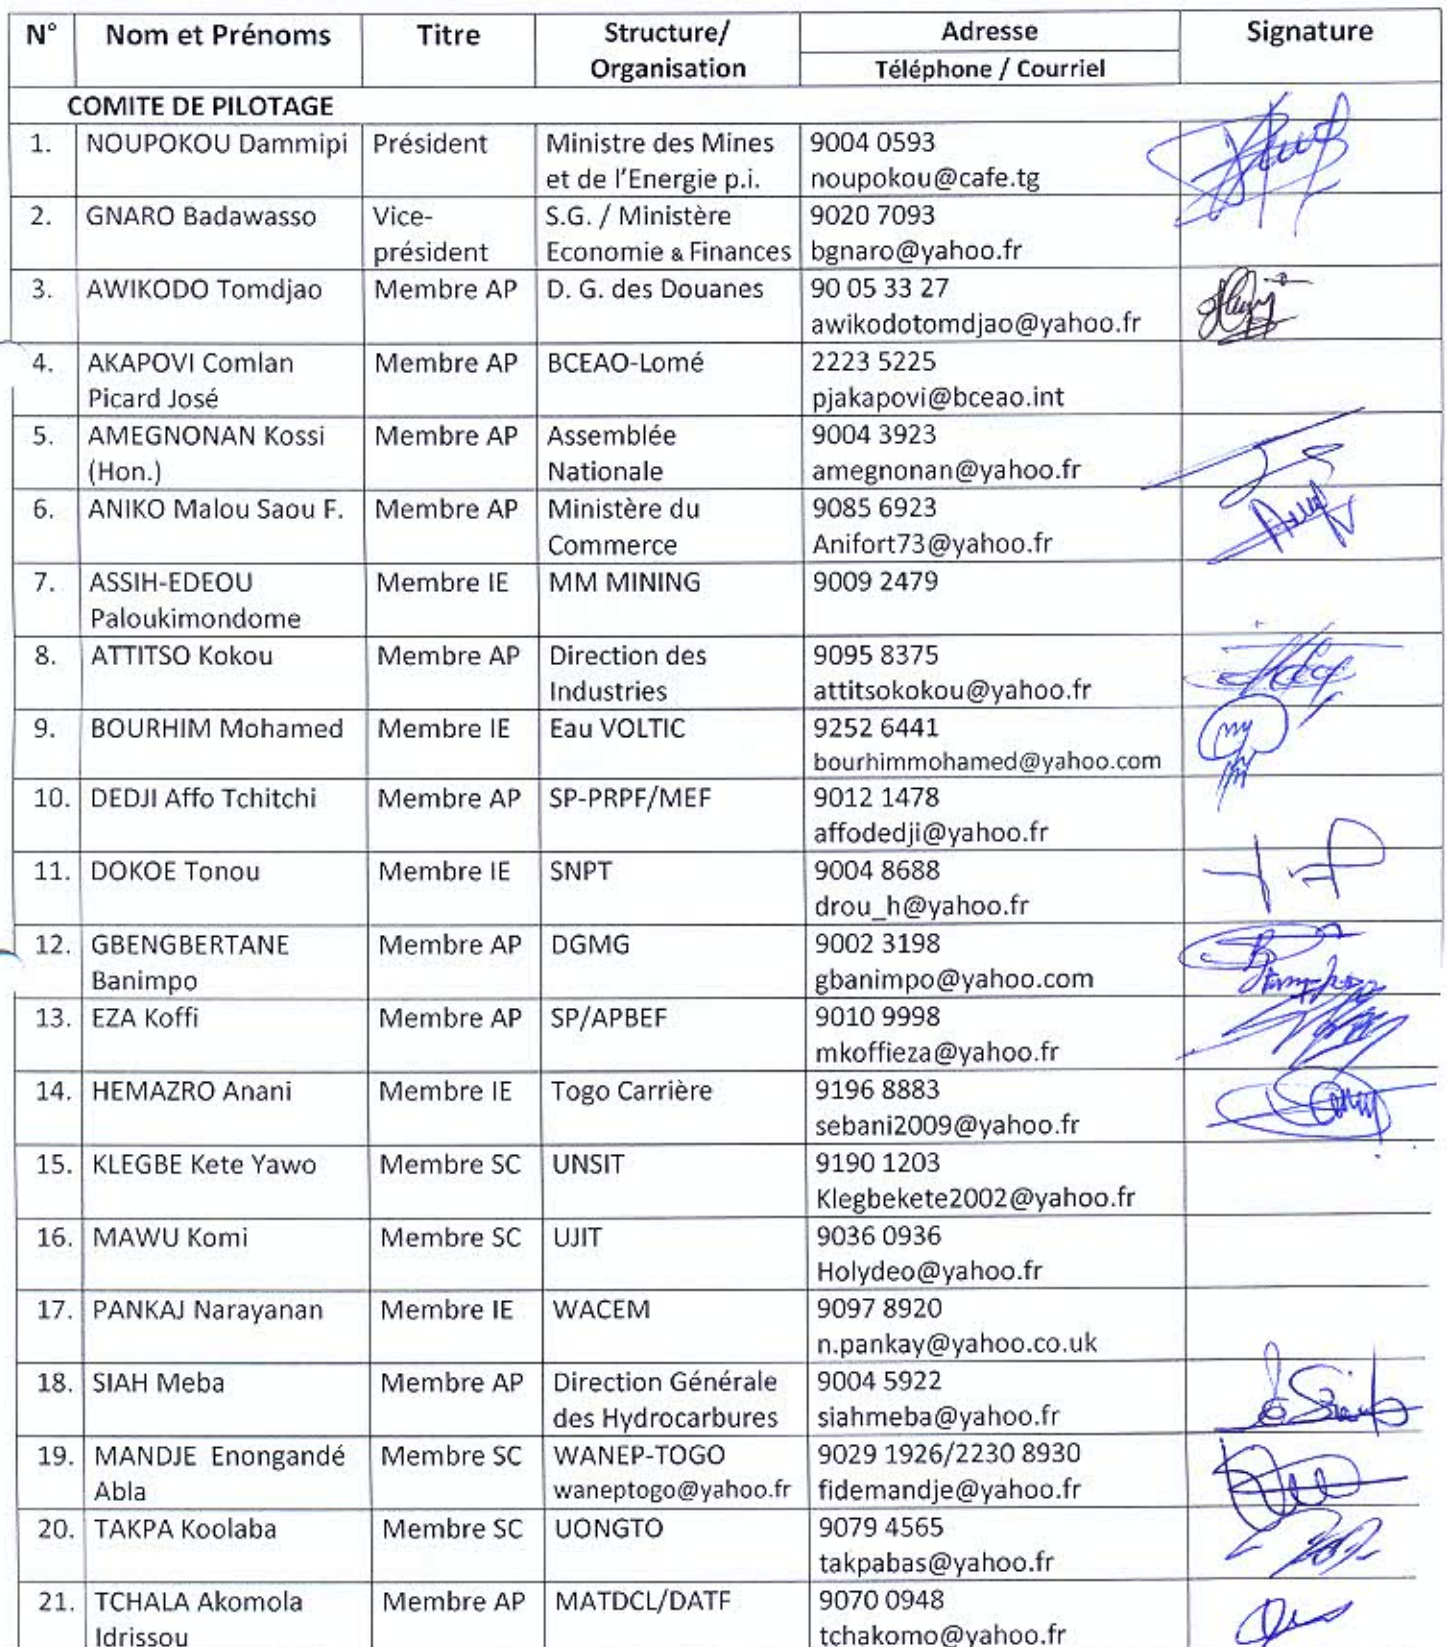 N° Nom et Prénoms Titre Structure/ Organisation Adresse Signature
Téléphone / Courriel
COMITE DE PILOTAGE
1. NOUPOKOU Dammipi Président Ministre des Mines 9004 0593
et de l'Energie p.i. noupokou@cafe.tg
2. GNARO Badawasso Vice- S.G. / Ministère 9020 7093
président Economie & Finances bgnaro@yahoo.fr
3. AWIKODO Tomdjao Membre AP D. G. des Douanes 90 05 33 27
awikodotomdjao@yahoo.fr
4. AKAPOVI Comlan Membre AP BCEAO-Lomé 2223 5225
Picard José pjakapovi@bceao.int
5. AMEGNONAN Kossi Membre AP Assemblée 9004 3923
(Hon.) Nationale amegnonan@yahoo.fr
6. ANIKO Malou Saou F. Membre AP Ministère du 9085 6923
Commerce Anifort73@yahoo.fr
7. ASSIH-EDEOU Membre IE MM MINING 9009 2479
Paloukimondome
8. ATTITSO Kokou Membre AP Direction des 9095 8375
Industries attitsokokou@yahoo.fr
9. BOURHIM Mohamed Membre IE Eau VOLTIC 9252 6441
bourhimmohamed@yahoo.com
10. DEDJI Affo Tchitchi Membre AP SP-PRPF/MEF 9012 1478
affodedji@yahoo.fr
11. DOKOE Tonou Membre IE SNPT 9004 8688
drou_h@yahoo.fr
12. GBENGBERTANE Membre AP DGMG 9002 3198
Banimpo gbanimpo@yahoo.com
13. EZA Koffi Membre AP SP/APBEF 9010 9998
mkoffieza@yahoo.fr
14. HEMAZRO Anani Membre IE Togo Carrière 9196 8883
sebani2009@yahoo.fr
15. KLEGBE Kete Yawo Membre SC UNSIT 9190 1203
Klegbekete2002@yahoo.fr
16. MAWU Komi Membre SC UJIT 9036 0936
Holydeo@yahoo.fr
17. PANKAJ Narayanan Membre IE WACEM 9097 8920
n.pankay@yahoo.co.uk
18. SIAH Meba Membre AP Direction Générale 9004 5922
des Hydrocarbures siahmeba@yahoo.fr
19. MANDJE Enongandé Membre SC WANEP-TOGO 9029 1926/2230 8930
Abla waneptogo@yahoo.fr fidemandje@yahoo.fr
20. TAKPA Koolaba Membre SC UONGTO 9079 4565
takpabas@yahoo.fr
21. TCHALA Akomola Membre AP MATDCL/DATF 9070 0948
Idrissou tchakomo@yahoo.fr